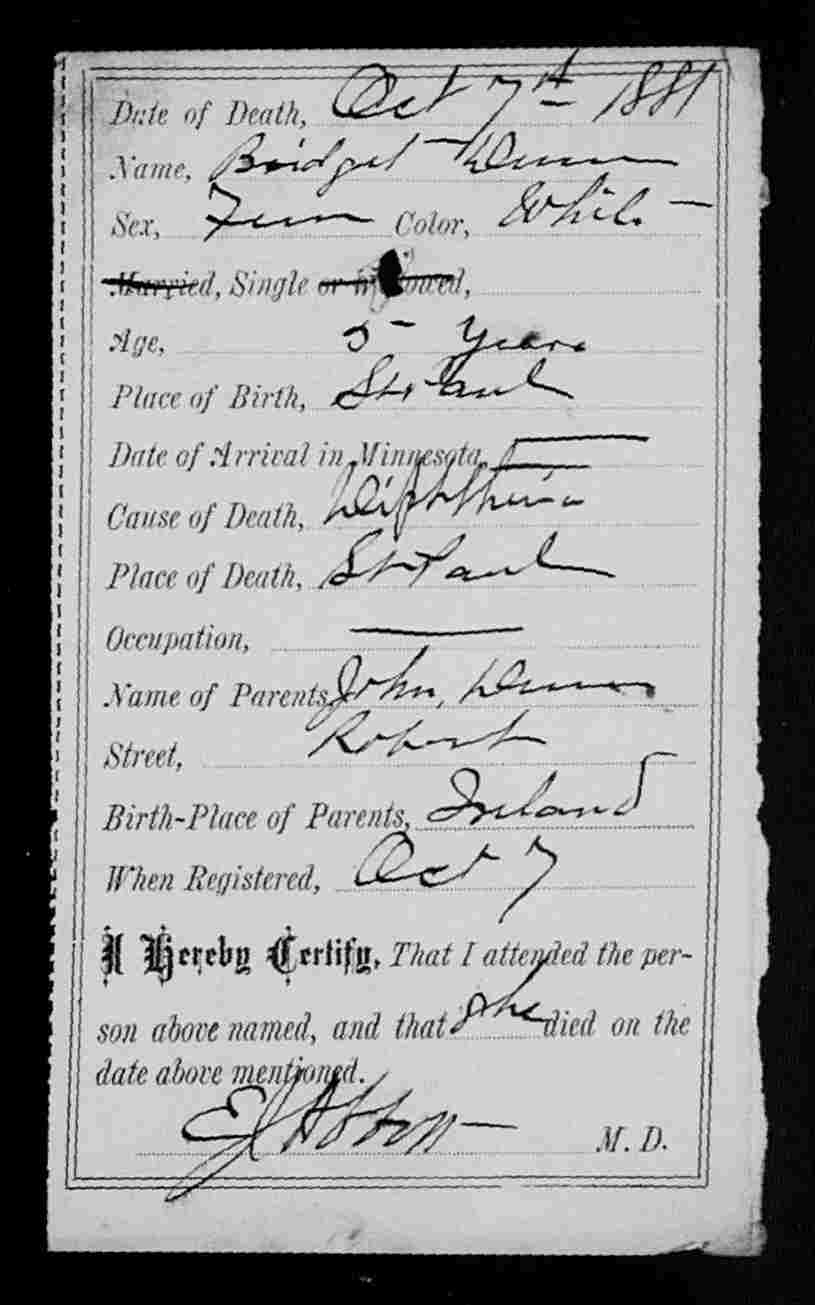 Date of Death, Oct 7th 1881
Name, Bridget Dunn
Sex, Fem Color, White
Married, Single or Widowed,
Age, 5 Years
Place of Birth, St Paul
Date of Arrival in Minnesota,
Cause of Death, Diphtheria
Place of Death, St Paul
Occupation,
Name of Parents, John, Dunn
Street, Robert
Birth-Place of Parents, Ireland
When Registered, Oct 7
I Hereby Certify, That I attended the per-
son above named, and that she died on the
date above mentioned.
M. D.